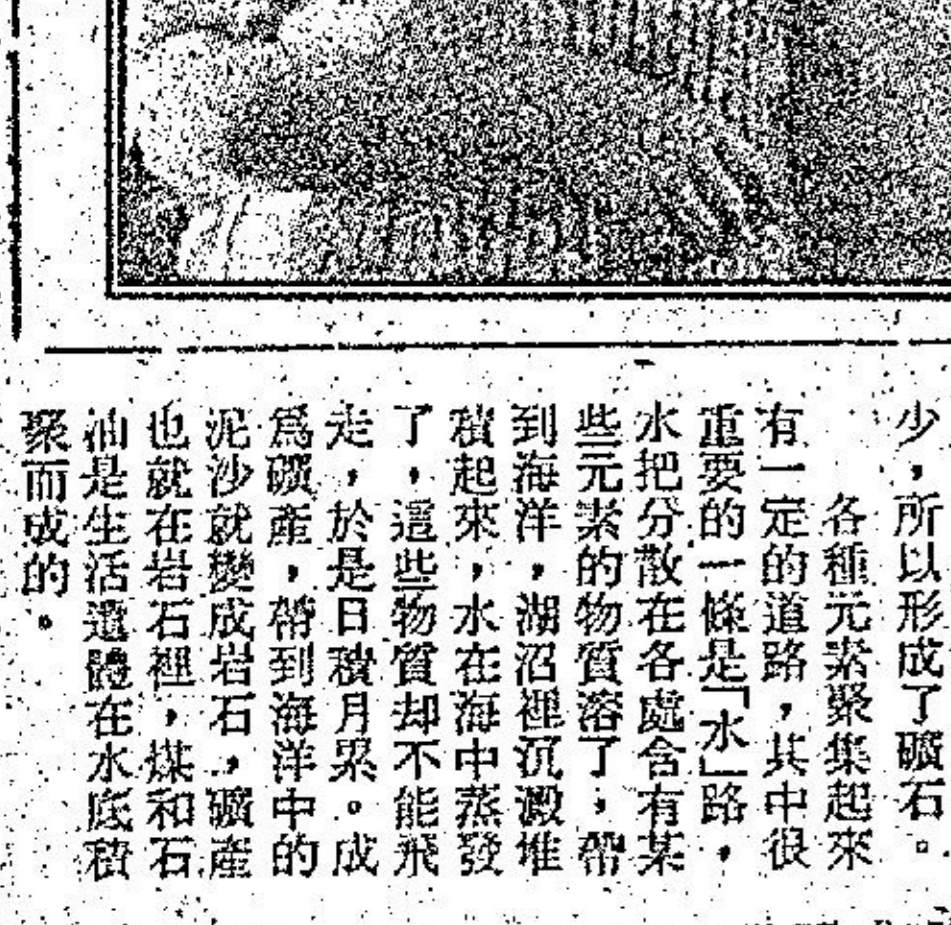 少，所以形成了礦石。
各種元素聚集起來
有一定的道路，其中很
重要的一條是「水」路，
水把分散在各處含有某
些元素的物質溶了，帶
到海洋，湖沼裡沉澱堆
積起來，水在海中蒸發
了，這些物質却不能飛
走，於是日積月累。成
爲礦產，帶到海洋中的
泥沙就變成岩石，礦產
也就在岩石裡，煤和石
油是生活遺體在水底積
聚而成的。